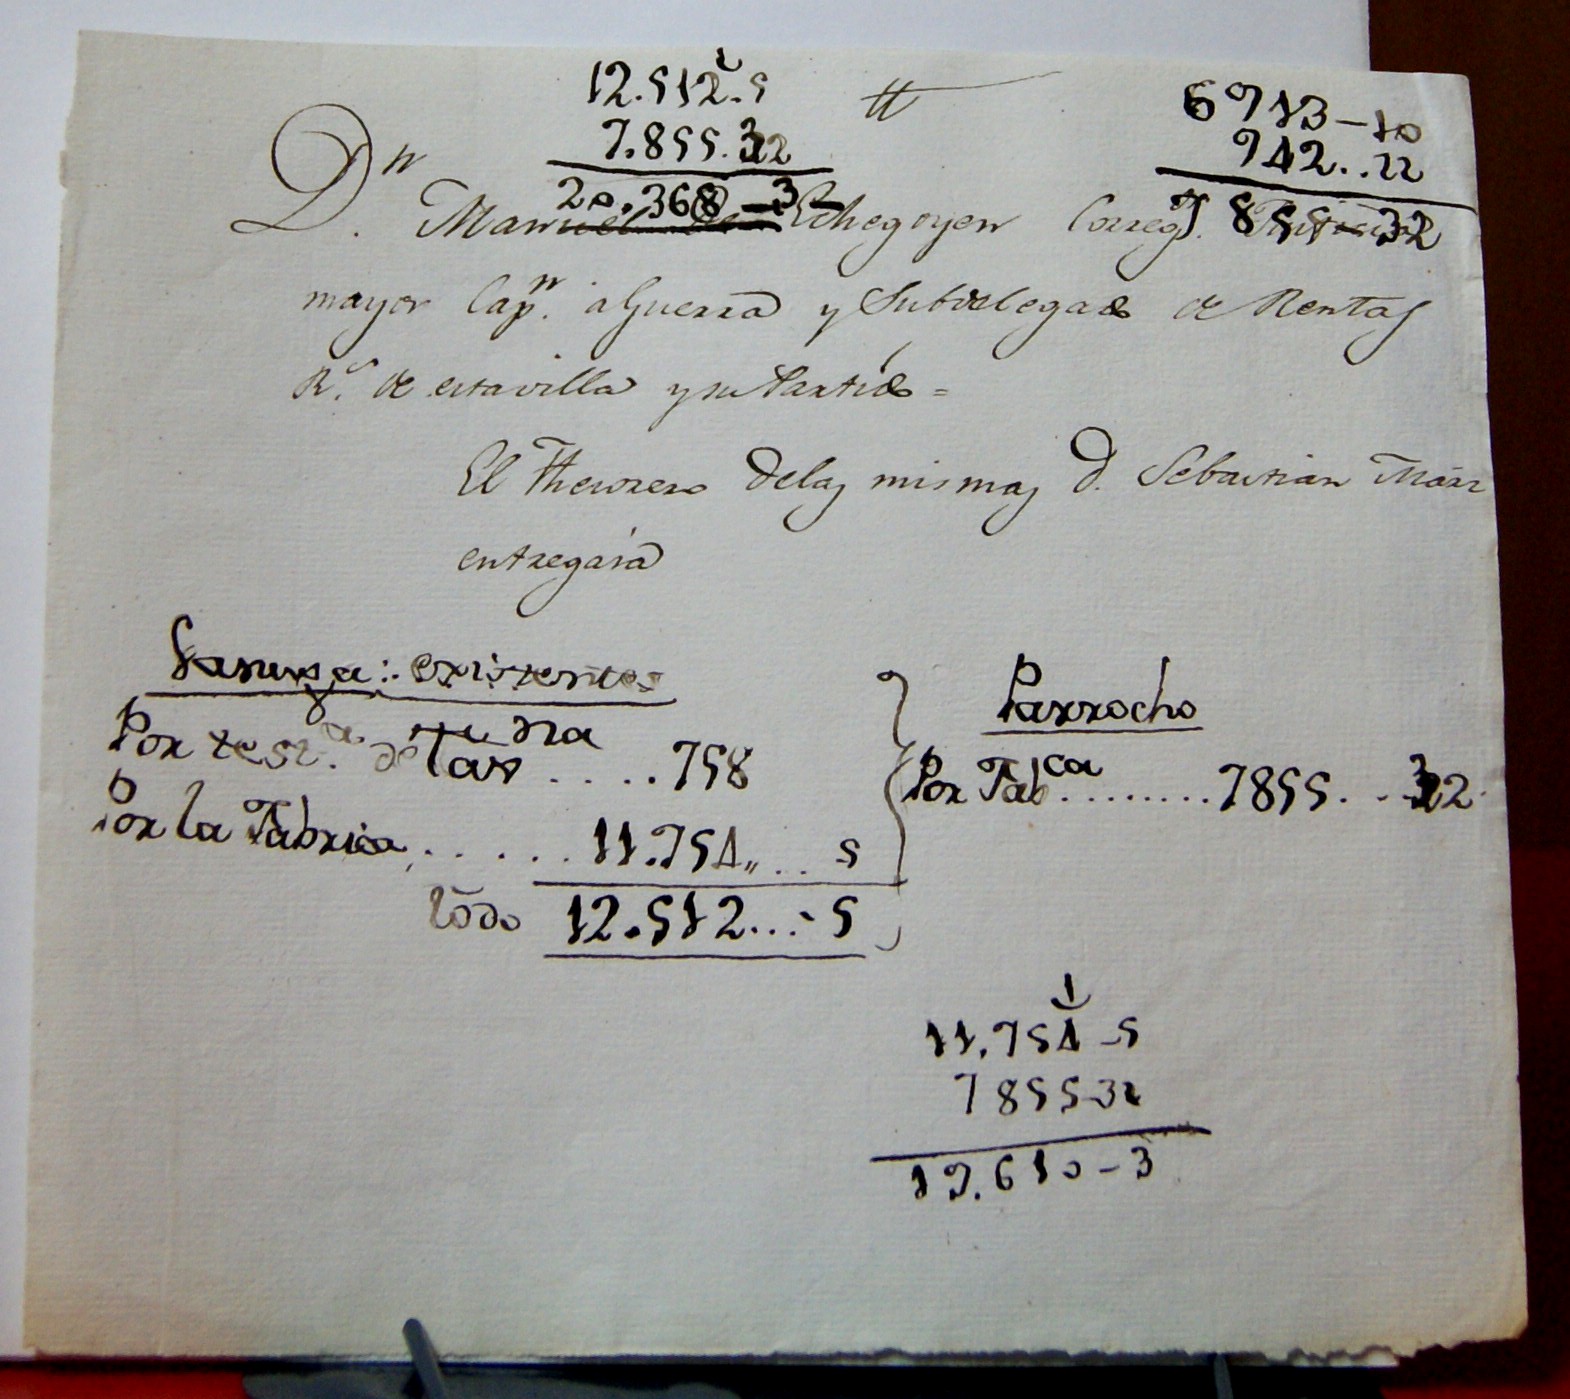 12.512.5
7.855.32
20.368-3
tt
6913-10
942..22
7855-32
Dn. Manuel de Echegoyen Correg.
mayor Capn. aGuerra y Subdelegado de Rentas
Rs. de estavilla y su Partido =
El Thesorero delas mismas D. Sebastian Marz
entregara
existentes
Por tesra. de 758
Por la Fabrica, ...... 11.754,, ... 5
todo 12.512...-5
Parrocho
Por Fabca........7855...32
1
11.754-5
785532
19.610-3